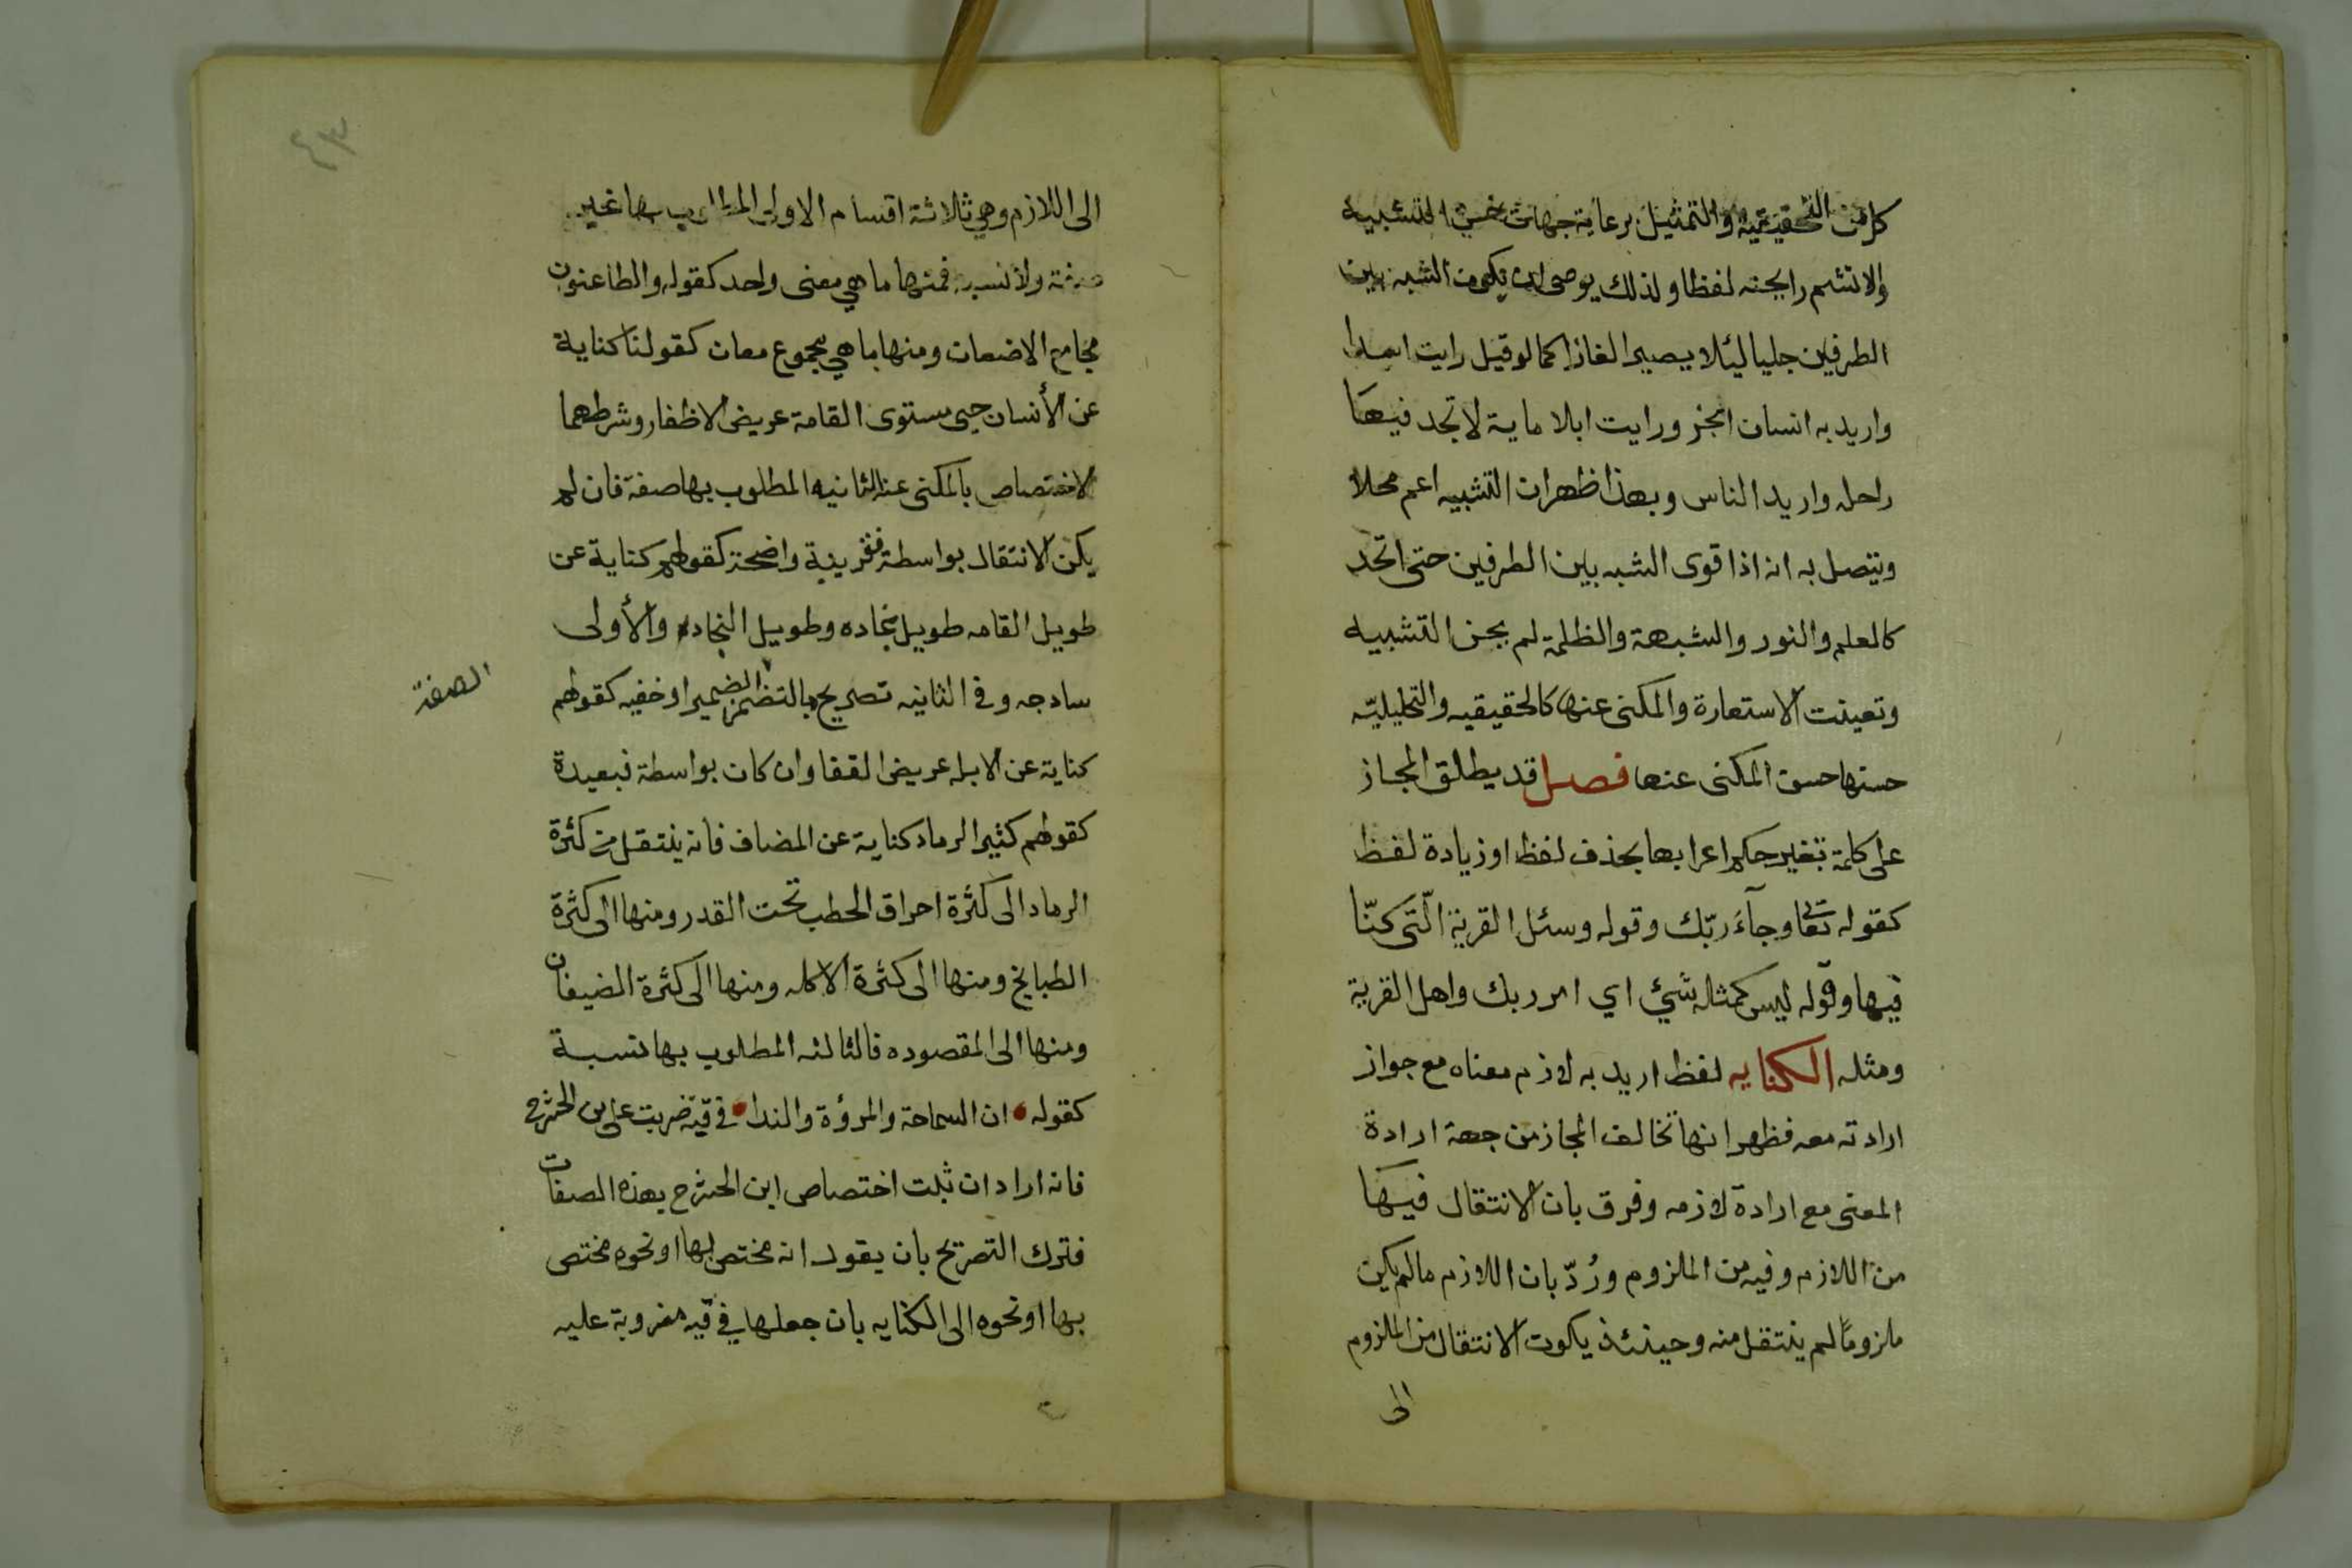 كل من التحقيقية والتمثيل برعاية جهات حسن التشبيه
والا تشم رايحته لفظا ولذلك يوصى ان يكون الشبه بين
الطرفين جليا ليئلا يصير الغازا كما لو قيل رايت اسدا
واريد به انسان ابخر ورايت ابلا ماية لا تجد فيها
راحله واريد الناس وبهذا ظهر ان التشبيه اعم محلا
ويتصل به انه اذا قوى الشبه بين الطرفين حتى اتحد
كالعلم والنور والشبهة والظلمة لم يحسن التشبيه
وتعينت الاستعارة والمكنى عنها كالحقيقيه والتخليليّه
حسنها حسن المكنى عنها فصل قد يطلق المجاز
على كلمة تغير حكم اعرابها بحذف لفظ او زيادة لفظ
كقوله تعا وجآءَ ربّك وقوله وسئل القرية الّتى كنّا
فيها وقوله ليس كمثله شيئ اي امر ربك واهل القرية
ومثله الكنايه لفظ اريد به لازم معناه مع جواز
ارادته معه فظهر انها تخالف المجاز من جهة ارادة
المعنى مع ارادة لازمه وفرق بان الانتقال فيها
من اللازم وفيه من الملزوم ورُدّ بان اللازم ما لم يكن
ملزومًا لم ينتقل منه وحينئذ يكون الانتقال من الملزوم
الى
٤٣
الى اللازم وهي ثلاثة اقسام الاولى المطلوب بها غير
صفة ولا نسبه فمنها ما هي معنى واحد كقوله والطاعنون
مجامع الاضعان ومنها ما هي مجموع معان كقولنا كناية
عن الأنسان حيى مستوى القامة عريض الاظفار وشرطهما
الاختصاص بالمكنى عنه الثانيه المطلوب بها صفة فان لم
يكن الانتقال بواسطة فقريبة واضحة كقولهم كناية عن
طويل القامه طويل نجاده وطويل النجاد والأولى
سادجه وفى الثانيه تصريح ما لتضمن الضمير او خفيه كقولهم
الصفة
كناية عن الابله عريض القفا وان كان بواسطة فبعيدة
كقولهم كثير الرماد كناية عن المضاف فانه ينتقل من كثرة
الرماد الى كثرة احراق الحطب تحت القدر ومنها الى كثرة
الطبايخ ومنها الى كثرة الاكله ومنها الى كثرة الضيفان
ومنها الى المقصوده فالثالثه المطلوب بها نسبة
كقوله ان السماحة والمرؤة والندا في قبة ضربت على بن الحشرج
فانه اراد ان ثبلت اختصاص ابن الحشرج بهذه الصفات
فترك التصريح بان يقول انه مختص بها او نحوه مختص
بها او نحوه الى الكنايه بان جعلها في قبه مضروبة عليه